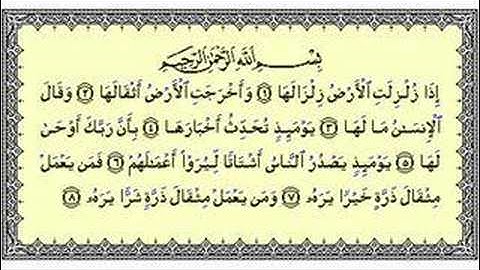 بِسْمِ ٱللَّهِ ٱلرَّحْمَٰنِ ٱلرَّحِيمِ
إِذَا زُلْزِلَتِ ٱلْأَرْضُ زِلْزَالَهَا ١ وَأَخْرَجَتِ ٱلْأَرْضُ أَثْقَالَهَا ٢ وَقَالَ
ٱلْإِنسَٰنُ مَا لَهَا ٣ يَوْمَئِذٍ تُحَدِّثُ أَخْبَارَهَا ٤ بِأَنَّ رَبَّكَ أَوْحَىٰ
لَهَا ٥ يَوْمَئِذٍ يَصْدُرُ ٱلنَّاسُ أَشْتَاتًا لِّيُرَوْا۟ أَعْمَٰلَهُمْ ٦ فَمَن يَعْمَلْ
مِثْقَالَ ذَرَّةٍ خَيْرًا يَرَهُۥ ٧ وَمَن يَعْمَلْ مِثْقَالَ ذَرَّةٍ شَرًّا يَرَهُۥ ٨